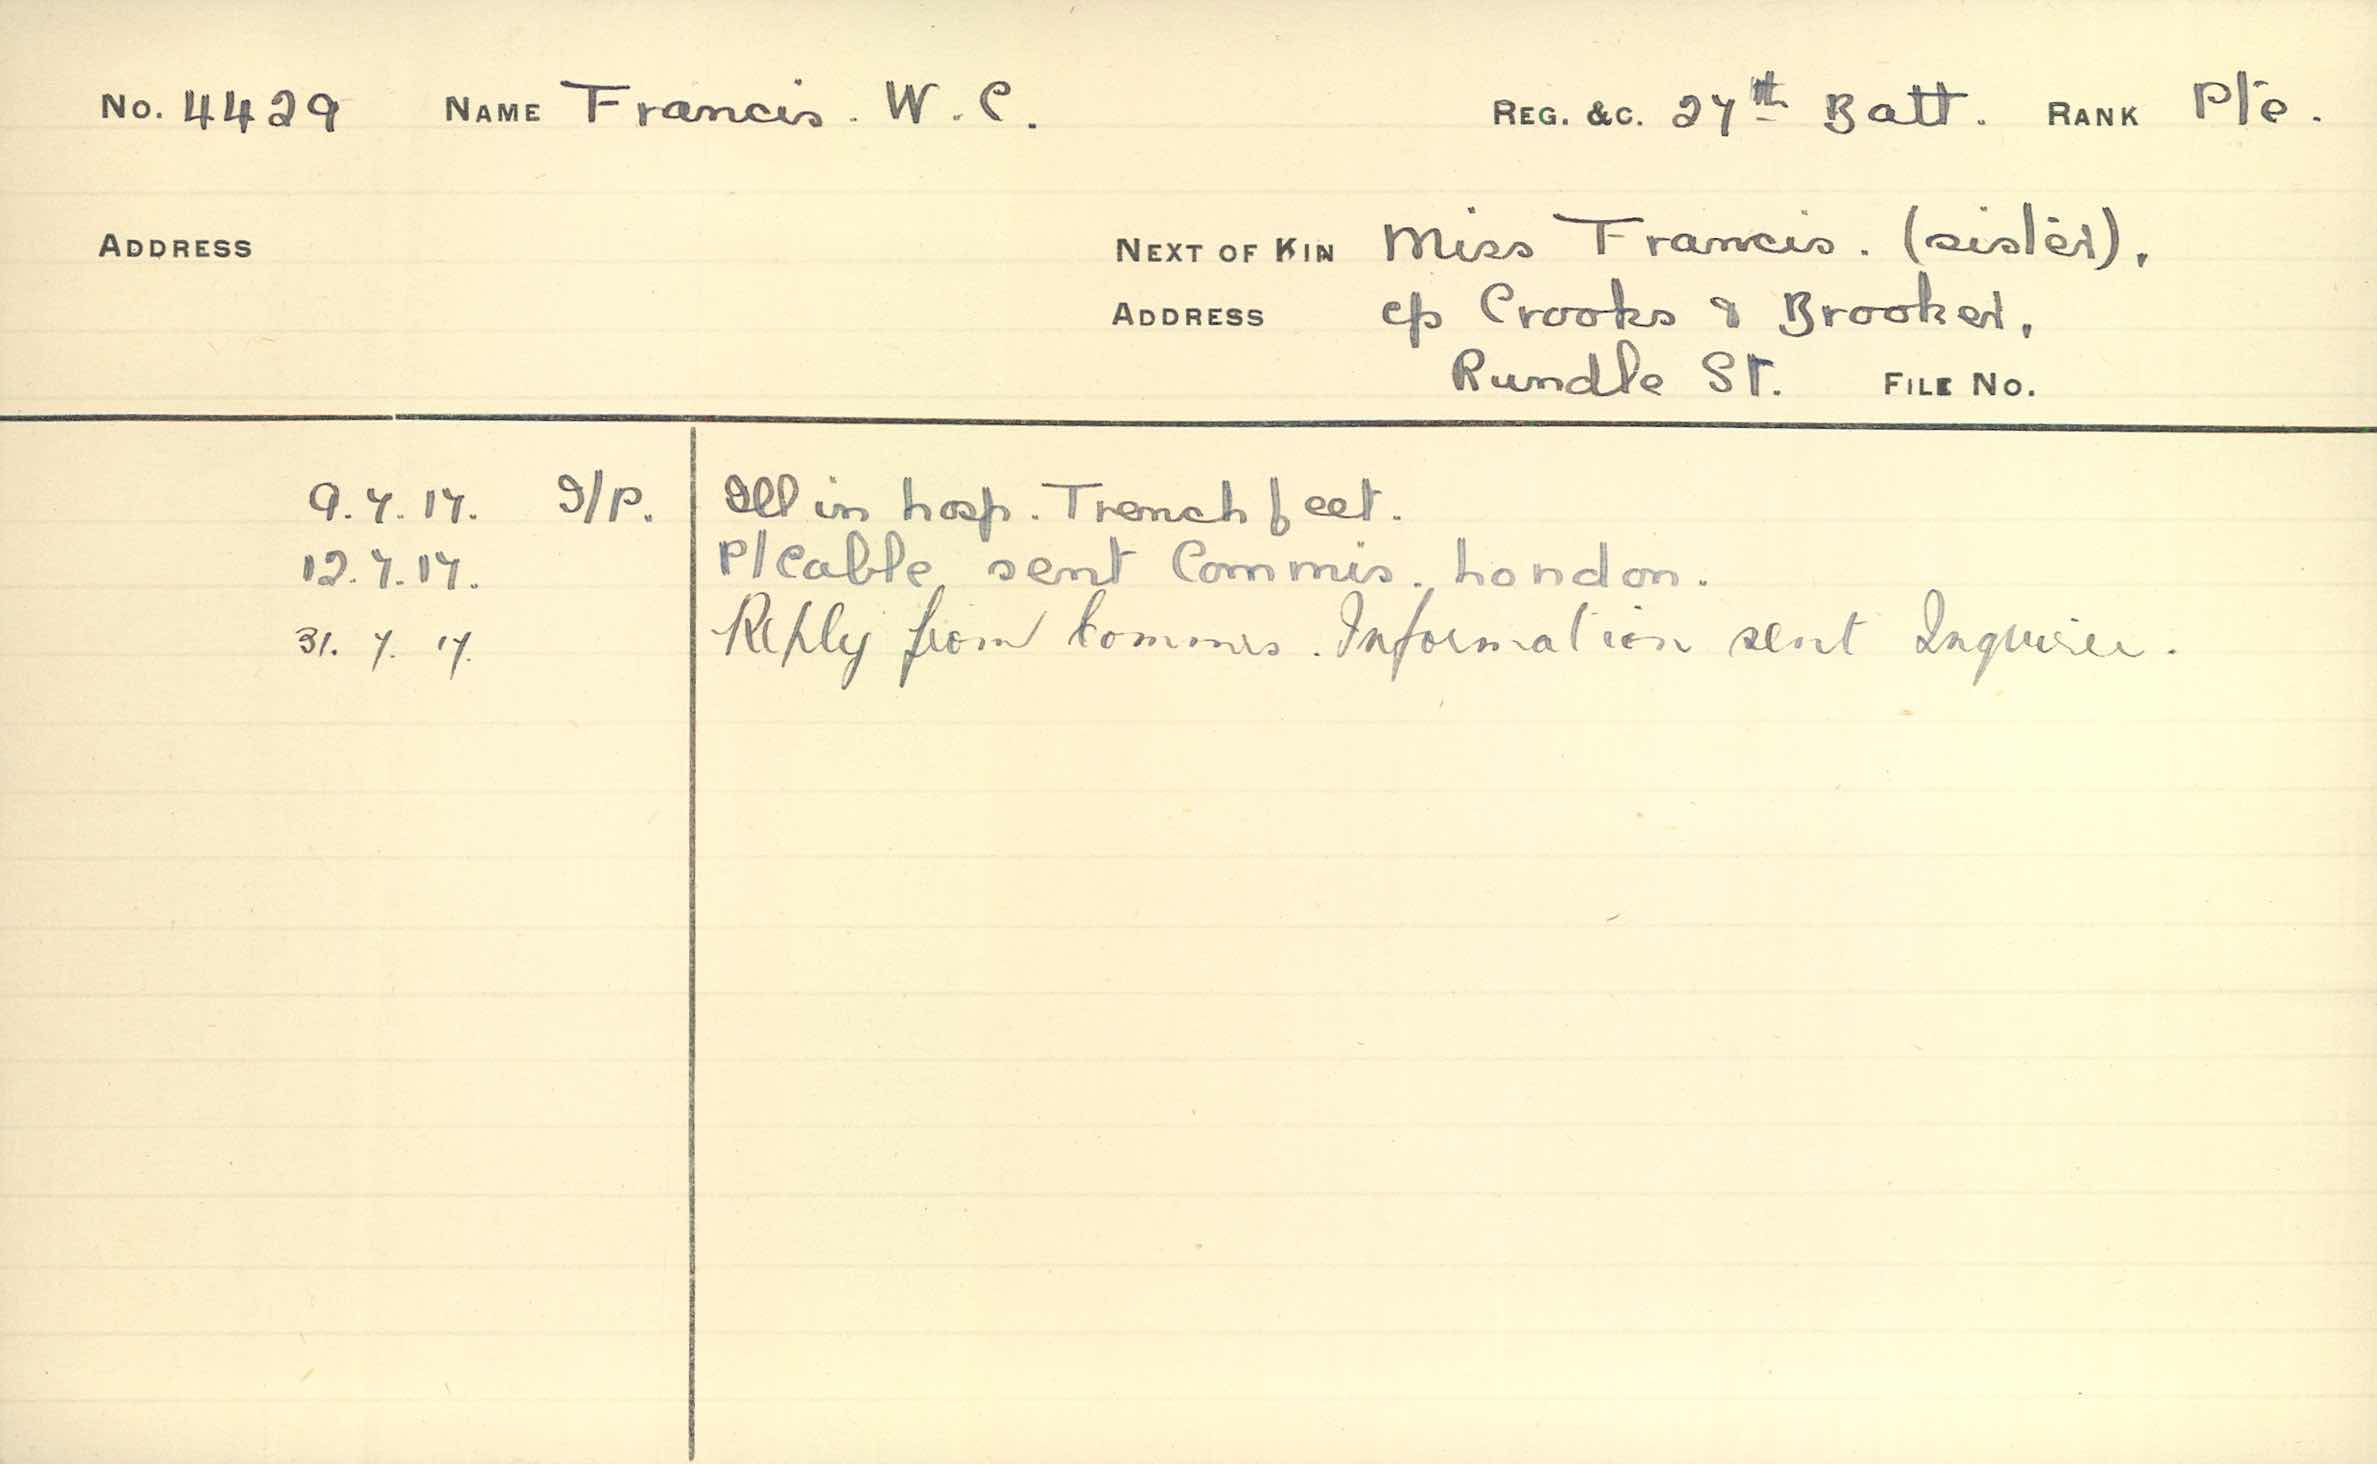 No. 4429 NAME Francis. W. C. REG. &C. 27th Batt. RANK P/e.
ADDRESS NEXT OF KIN Miss Francis. (sister).
ADDRESS c/o Crooks & Brooker,
Rundle St. FILE No.
9.7.17. I/P. Ill in hosp. Trench feet.
12.7.17. P/Cable sent Commis. London.
31. 7. 17. Reply from Commis. Information sent Inquirer.